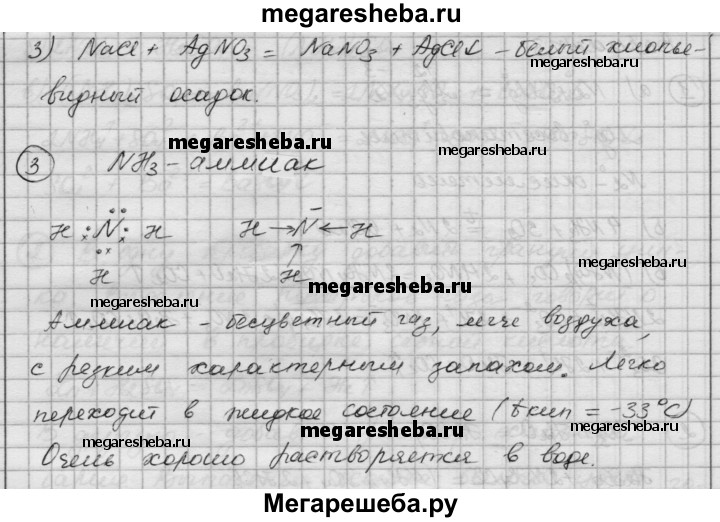 megaresheba.ru
3) NaCl + AgNO3 = NaNO3 + AgCl↓ - белый хлопье-
видный осадок.
megaresheba.ru
megaresheba.ru
3 NH3 - аммиак
H :N: H H → N ← H
H H
megaresheba.ru
megaresheba.ru
Аммиак - бесцветный газ, легче воздуха,
с резким характерным запахом. Легко
megaresheba.ru
переходит в жидкое состояние (tкип = -33°C)
megaresheba.ru
megaresheba.ru
megaresheba.ru
Очень хорошо растворяется в воде.
Мегарешеба.ру